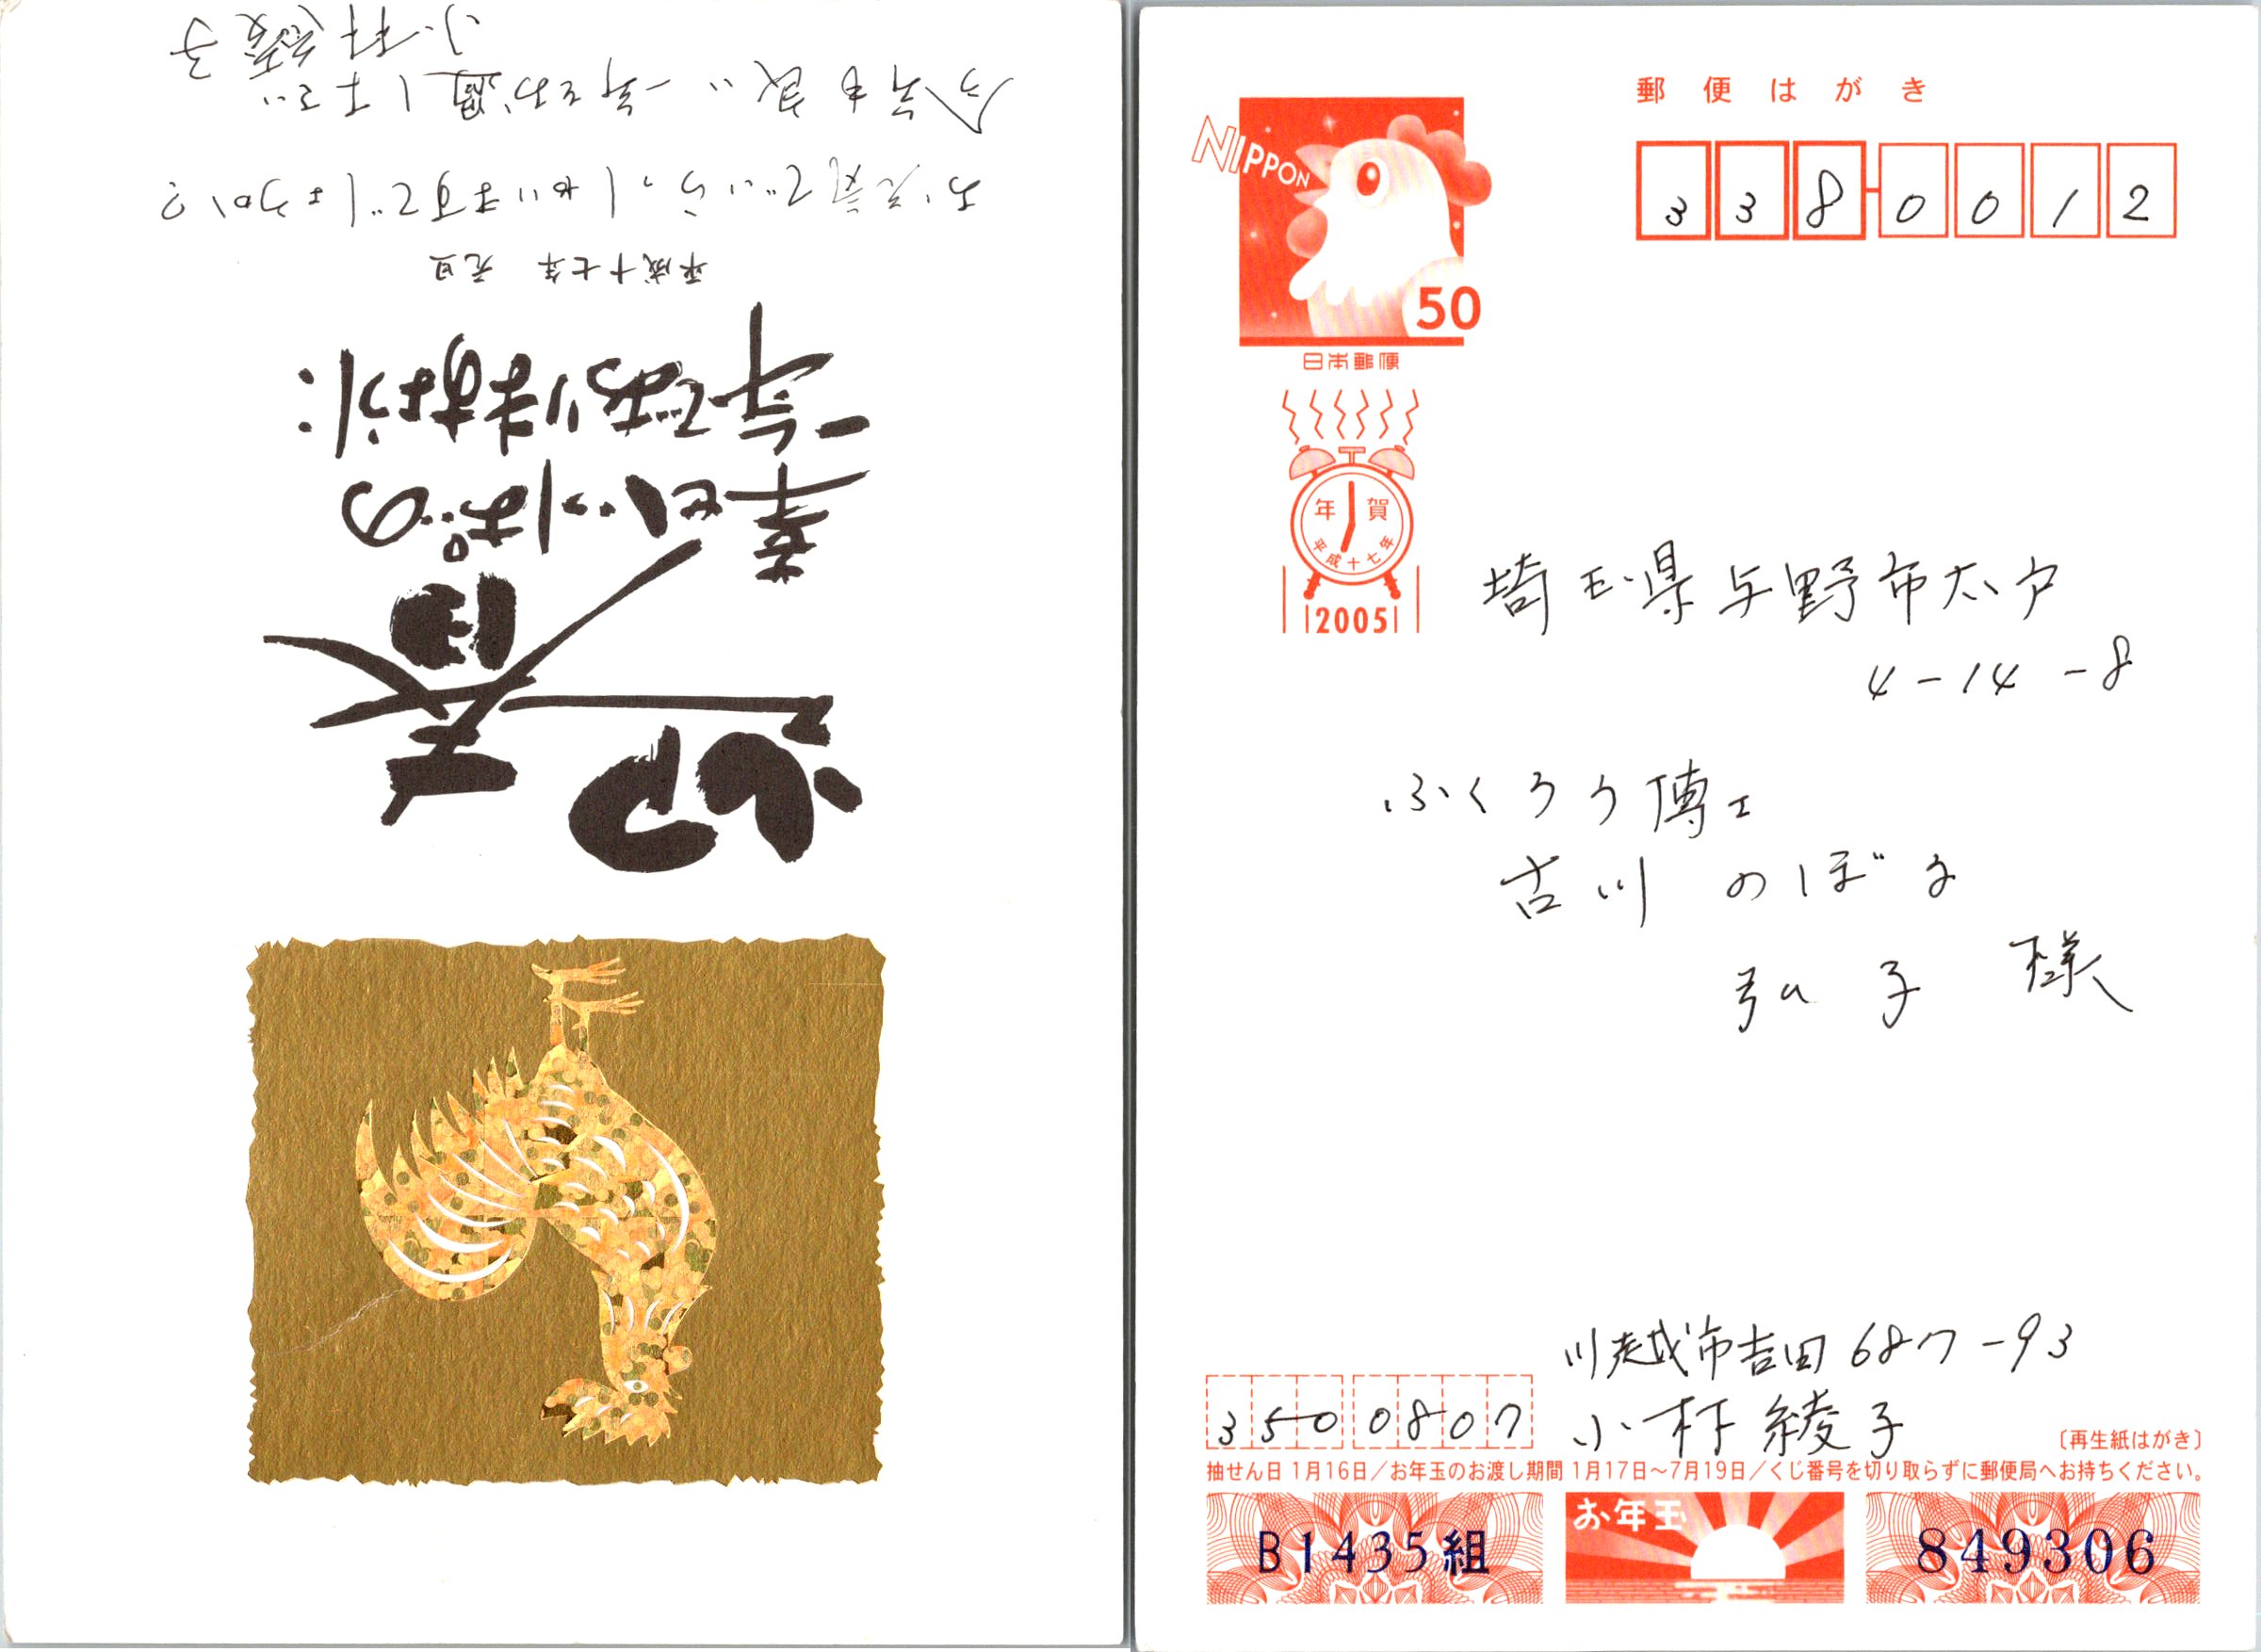 迎春
幸せいっぱいの
一年でありますように
平成十七年 元旦
お元気でいらっしゃいますでしょうか?
今年も良い一年をお過し下さい
小林綾子
郵便はがき
338-0012
NIPPON
50
日本郵便
年賀
平成十七年
2005
埼玉県与野市大戸
4-14-8
ふくろう博士
古川 のぼる
弘子 様
川越市吉田687-93
小林綾子
3500807
〔再生紙はがき〕
抽せん日 1月16日/お年玉のお渡し期間 1月17日~7月19日/くじ番号を切り取らずに郵便局へお持ちください。
B1435組
お年玉
849306